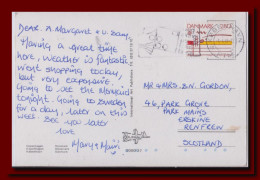 DEAR. A. Margaret & U. Sam
Having a great time
here, weather is fantastic
went shopping today,
but very expensive.
Going to see the Mermaid
tonight. Going to Sweden
for a day, later on this
week. See you later
love
Mary &
DANMARK
MR & MRS. D.N. GORDON,
46, PARK GROVE
PARK MAINS
ERSKINE
RENFREW
SCOTLAND